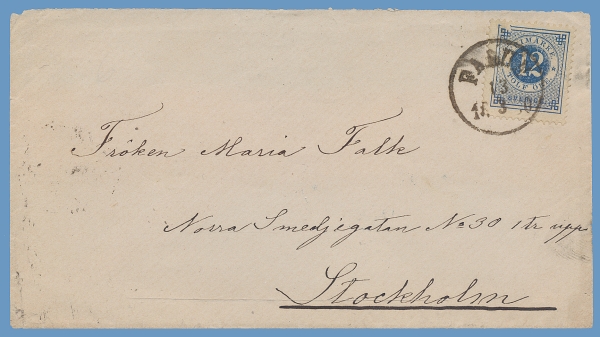 FRIMÄRKE
12
TOLF ÖRE
SVERIGE
FALUN
13
Fröken Maria Falk
Norra Smedjegatan No 30 1 tr upp
Stockholm